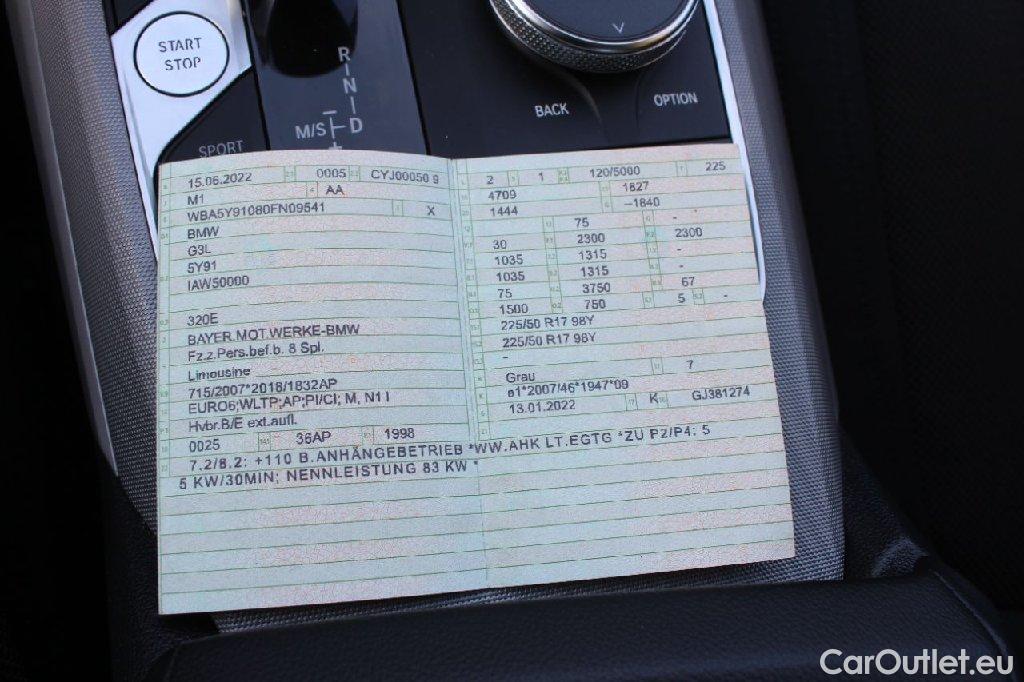 START
STOP
R
N
D
M/S
D
+
SPORT
BACK
OPTION
15.06.2022 0005 CYJ00050 9
M1 AA
WBA5Y91080FN09541 X
BMW
G3L
5Y91
IAW50000
320E
BAYER.MOT.WERKE-BMW
Fz.z.Pers.bef.b. 8 Spl.
Limousine
715/2007*2018/1832AP
EURO6;WLTP;AP;PI/CI; M, N1 I
Hybr.B/E ext.aufl.
0025 36AP 1998
2 1 120/5000 225
4709 1827
1444 –1840
75 -
30 2300 2300
1035 1315 -
1035 1315 -
75 3750 67
1500 750 5 -
225/50 R17 98Y
225/50 R17 98Y
-
Grau 7
e1*2007/46*1947*09
13.01.2022 K GJ381274
7.2/8.2: +110 B.ANHÄNGEBETRIEB *WW.AHK LT.EGTG *ZU P2/P4: 5
5 KW/30MIN; NENNLEISTUNG 83 KW *
CarOutlet.eu